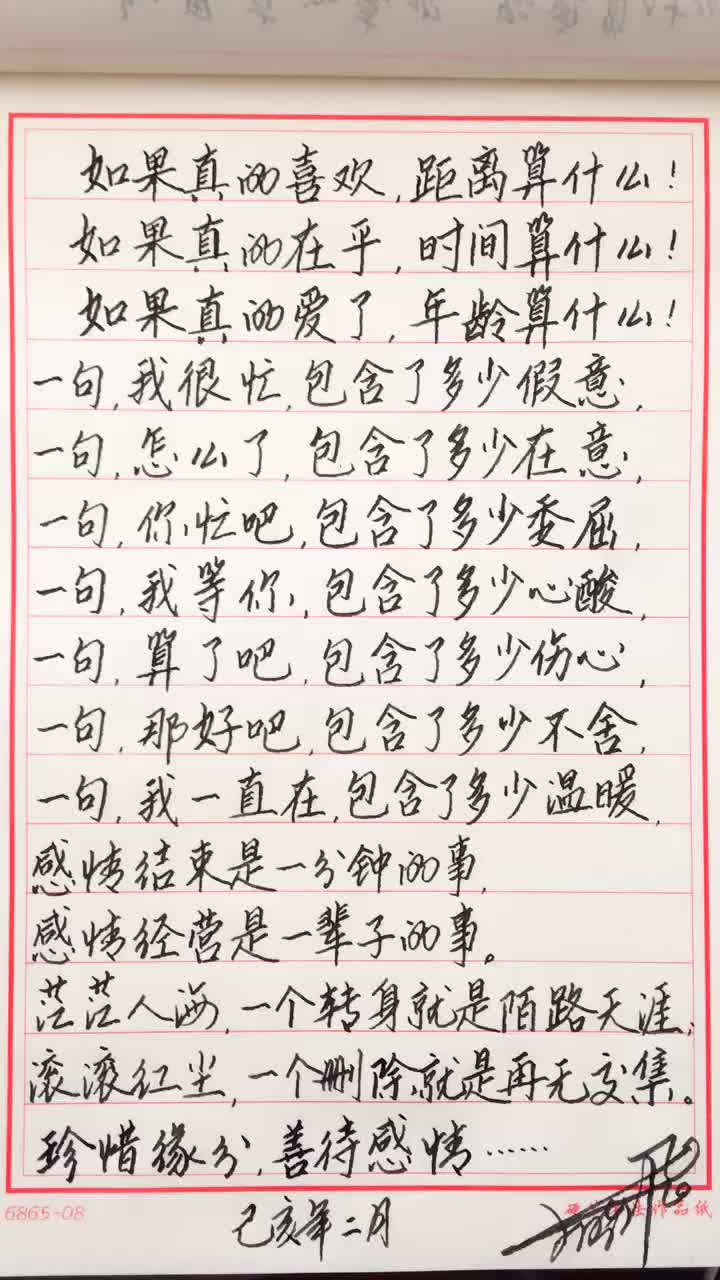 如果真的喜欢,距离算什么!
如果真的在乎,时间算什么!
如果真的爱了,年龄算什么!
一句,我很忙,包含了多少假意,
一句,怎么了,包含了多少在意,
一句,你忙吧,包含了多少委屈,
一句,我等你,包含了多少心酸,
一句,算了吧,包含了多少伤心,
一句,那好吧,包含了多少不舍,
一句,我一直在,包含了多少温暖,
感情结束是一分钟的事,
感情经营是一辈子的事。
茫茫人海,一个转身就是陌路天涯,
滚滚红尘,一个删除就是再无交集。
珍惜缘分,善待感情……
6865-08
己亥年二月
作品纸